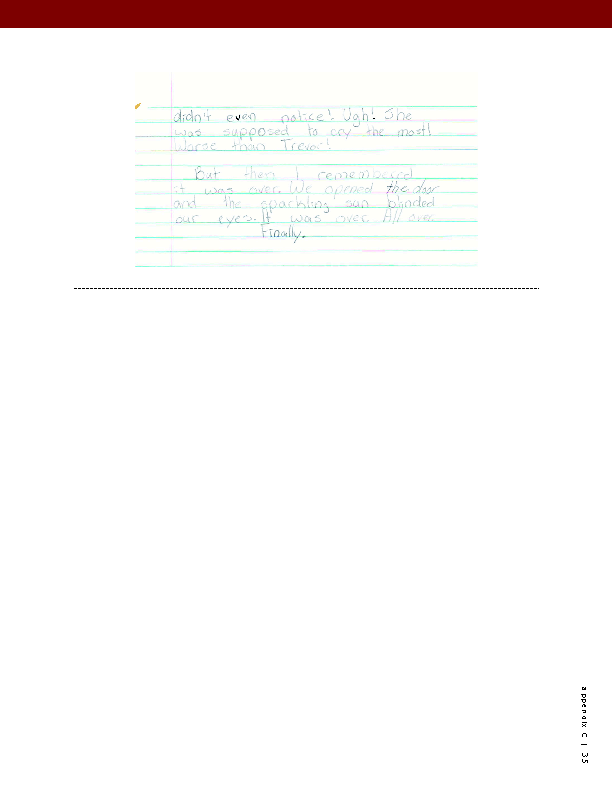 didn't even notice! Ugh! She
was supposed to cry the most!
Worse than Trevor!
But then I rememberd
it was over. We opened the door
and the sparkling sun blinded
our eyes. It was over. All over.
Finally.
appendix C | 35